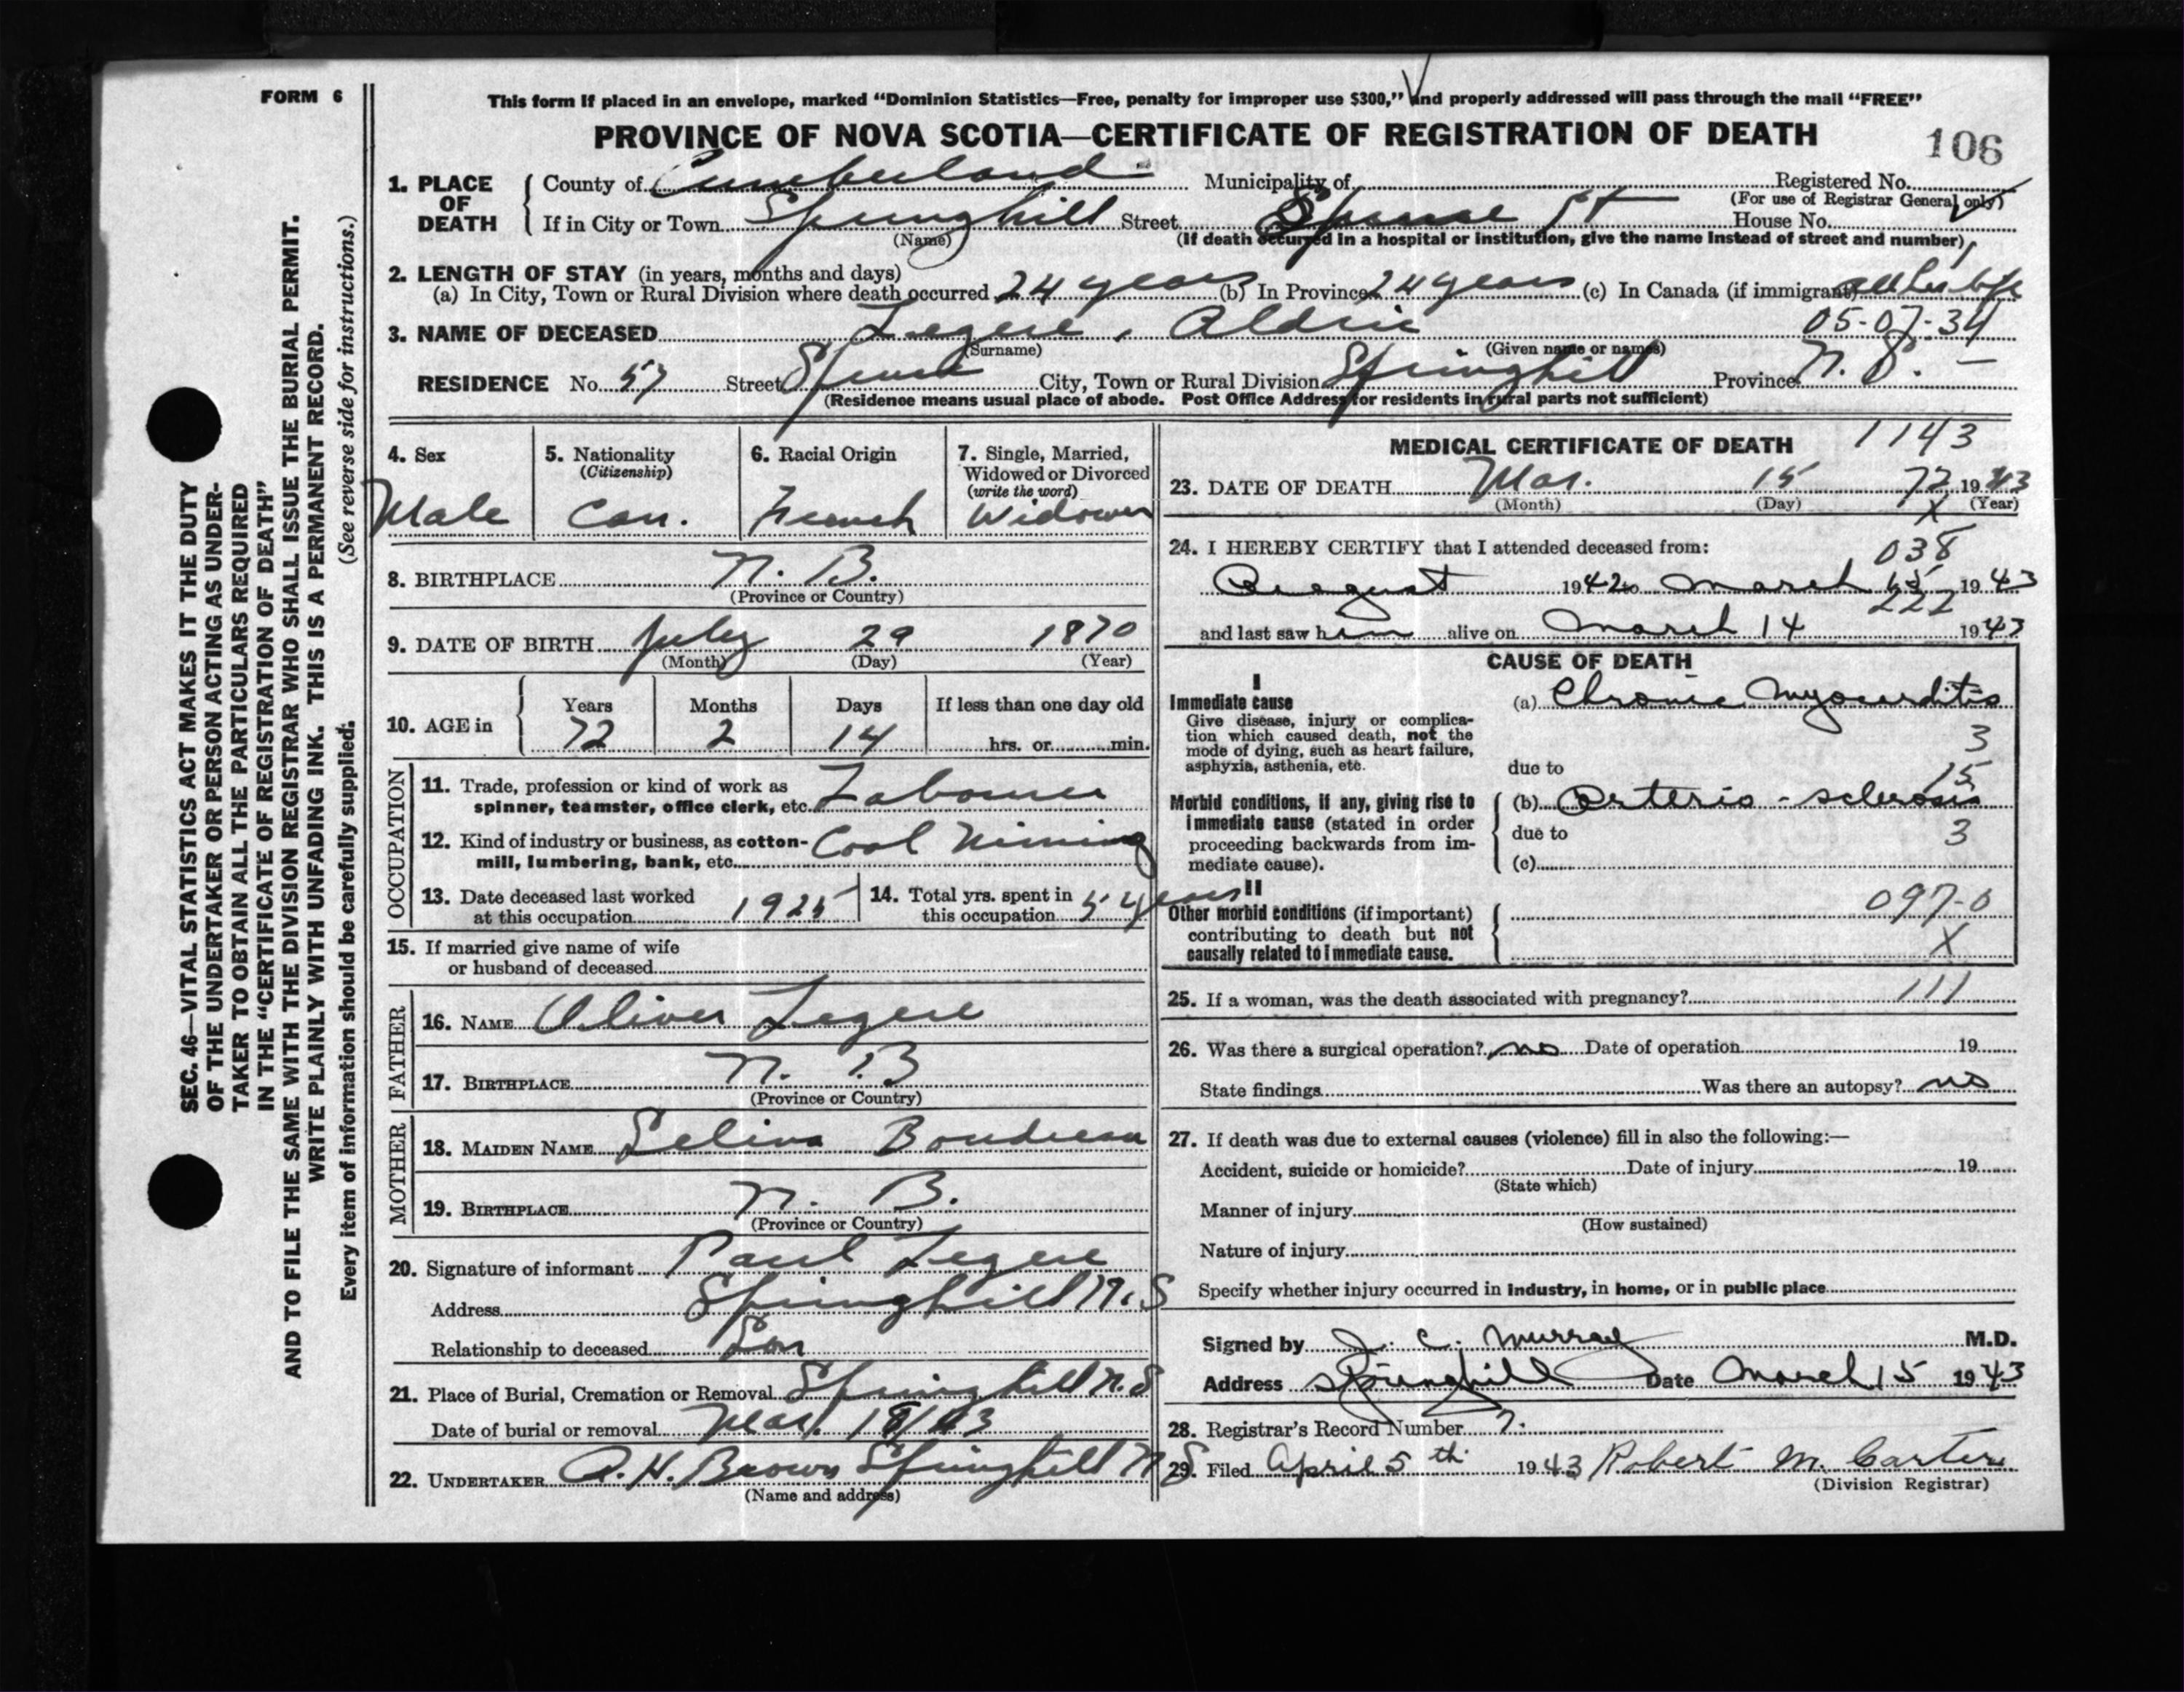 FORM 6
This form if placed in an envelope, marked “Dominion Statistics—Free, penalty for improper use $300,” and properly addressed will pass through the mail “FREE”
PROVINCE OF NOVA SCOTIA—CERTIFICATE OF REGISTRATION OF DEATH
106
1. PLACE OF DEATH County of Cumberland Municipality of Registered No.
(For use of Registrar General only)
If in City or Town Springhill Street St House No.
(Name) (If death occurred in a hospital or institution, give the name instead of street and number)
2. LENGTH OF STAY (in years, months and days)
(a) In City, Town or Rural Division where death occurred 24 years (b) In Province 24 years (c) In Canada (if immigrant) all his life
3. NAME OF DECEASED Legere, Aldric 05-07-34
(Surname) (Given name or names)
RESIDENCE No. 57 Street City, Town or Rural Division Springhill Province N. S. —
(Residence means usual place of abode. Post Office Address for residents in rural parts not sufficient)
4. Sex
Male
5. Nationality
(Citizenship)
Can.
6. Racial Origin
French
7. Single, Married,
Widowed or Divorced
(write the word)
Widower
8. BIRTHPLACE N. B.
(Province or Country)
9. DATE OF BIRTH July 29 1870
(Month) (Day) (Year)
10. AGE in Years Months Days If less than one day old
72 2 14 hrs. or min.
OCCUPATION
11. Trade, profession or kind of work as
spinner, teamster, office clerk, etc. Labourer
12. Kind of industry or business, as cotton-
mill, lumbering, bank, etc. Coal Mining
13. Date deceased last worked
at this occupation 1925
14. Total yrs. spent in
this occupation 5 years
15. If married give name of wife
or husband of deceased
FATHER
16. NAME Oliver Legere
17. BIRTHPLACE N. B
(Province or Country)
MOTHER
18. MAIDEN NAME Selina Boudreau
19. BIRTHPLACE N. B.
(Province or Country)
20. Signature of informant Paul Legere
Address Springhill N. S
Relationship to deceased Son
21. Place of Burial, Cremation or Removal Springhill N. S
Date of burial or removal Mar. 18/43
22. UNDERTAKER A. H. Brown Springhill N S
(Name and address)
MEDICAL CERTIFICATE OF DEATH 1143
23. DATE OF DEATH Mar. 15 72 1943
(Month) (Day) X (Year)
24. I HEREBY CERTIFY that I attended deceased from: 038
August 1942 to March 15 1943
222
and last saw him alive on March 14 1943
CAUSE OF DEATH
I
Immediate cause
Give disease, injury or complica-
tion which caused death, not the
mode of dying, such as heart failure,
asphyxia, asthenia, etc.
(a) Chronic Myocarditis
3
due to
15
Morbid conditions, if any, giving rise to
immediate cause (stated in order
proceeding backwards from im-
mediate cause).
(b) Arterio-sclerosis
due to
3
(c)
II
Other morbid conditions (if important)
contributing to death but not
causally related to immediate cause.
097-0
X
25. If a woman, was the death associated with pregnancy? 111
26. Was there a surgical operation? no Date of operation 19
State findings Was there an autopsy? no
27. If death was due to external causes (violence) fill in also the following:—
Accident, suicide or homicide? Date of injury 19
(State which)
Manner of injury
(How sustained)
Nature of injury
Specify whether injury occurred in industry, in home, or in public place
Signed by J. C. Murray M.D.
Address Springhill Date March 15 1943
28. Registrar's Record Number 7.
29. Filed April 5th 1943 Robert M. Carter
(Division Registrar)
SEC. 46—VITAL STATISTICS ACT MAKES IT THE DUTY
OF THE UNDERTAKER OR PERSON ACTING AS UNDER-
TAKER TO OBTAIN ALL THE PARTICULARS REQUIRED
IN THE “CERTIFICATE OF REGISTRATION OF DEATH”
AND TO FILE THE SAME WITH THE DIVISION REGISTRAR WHO SHALL ISSUE THE BURIAL PERMIT.
WRITE PLAINLY WITH UNFADING INK. THIS IS A PERMANENT RECORD.
Every item of information should be carefully supplied. (See reverse side for instructions.)